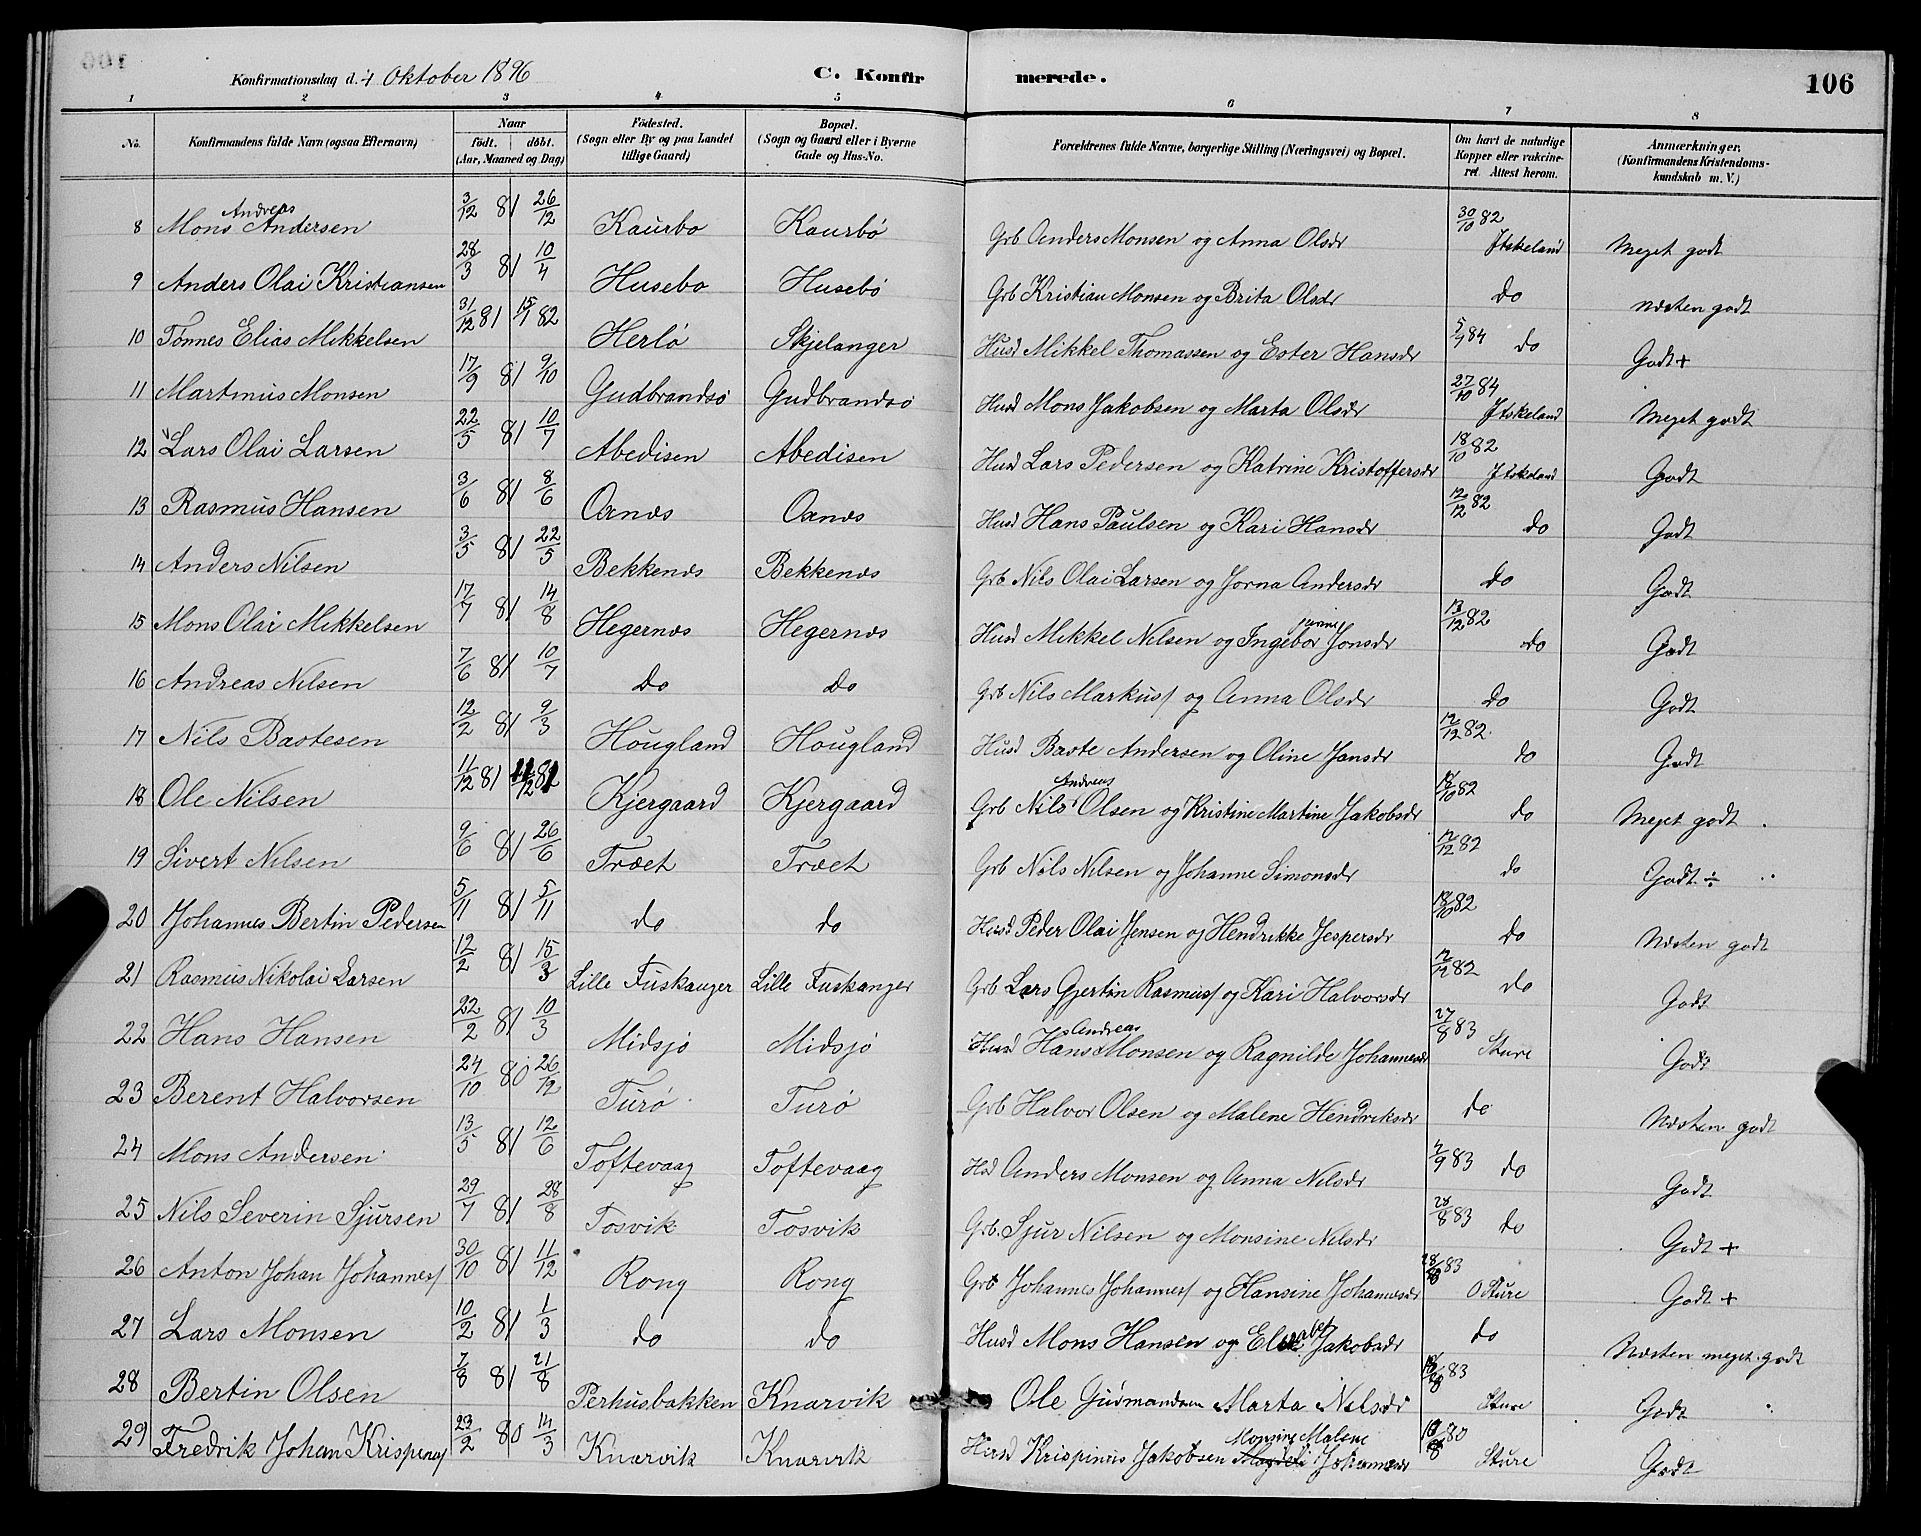 Konfirmationsdag d. 4 Oktober 1896 C. Konfirmerede. 106
1 2 3 4 5 6 7 8
No. Konfirmandens fulde Navn (ogsaa Efternavn) Naar født. døbt. (Aar, Maaned og Dag) Fødested. (Sogn eller By og paa Landet tillige Gaard) Bopæl. (Sogn og Gaard eller i Byerne Gade og Hus-No.) Forældrenes fulde Navne, borgerlige Stilling (Næringsvei) og Bopæl. Om havt de naturlige Kopper eller vakcineret. Attest herom. Anmærkninger. (Konfirmandens Kristendomskundskab m. V.)
8 Mons Andreas Andersen 3/12 81 26/12 Kaurbø Kaurbø Grb Anders Monsen og Anna Olsdr 30/10 82 Itskeland Meget godt
9 Anders Olai Kristiansen 28/3 81 10/4 Husebø Husebø Grb Kristian Monsen og Brita Olsdr do Næsten godt
10 Tønnes Elias Mikkelsen 31/12 81 15/1 82 Herlø Skjelanger Husd Mikkel Thomassen og Ester Hansdr 84 do Godt +
11 Martinus Monsen 17/9 81 9/10 Gudbrandsø Gudbrandsø Husd Mons Jakobsen og Marta Olsdr 27/10 84 Itskeland Meget godt
12 Lars Olai Larsen 22/5 81 10/7 Abedisen Abedisen Husd Lars Pedersen og Katrine Kristoffersdr 18/10 82 Itskeland Godt
13 Rasmus Hansen 3/6 81 8/6 Oanæs Oanæs Husd Hans Paulsen og Kari Hansdr 12/12 82 do Godt
14 Anders Nilsen 3/5 81 22/5 Bekkenæs Bekkenæs Grb Nils Olai Larsen og Jorna Andersdr do Godt
15 Mons Olai Mikkelsen 17/7 81 14/8 Hegernæs Hegernæs Husd Mikkel Nilsen og Ingebor Jonsdr 13/12 82 do Godt
16 Andreas Nilsen 7/6 81 10/7 do do Grb Nils Markus/ og Anna Olsdr do Godt
17 Nils Baatesen 12/2 81 9/3 Hougland Hougland Husd Baate Andersen og Oline Jansdr 12/12 82 do Godt
18 Ole Nilsen 11/12 81 Kjergaard Kjergaard Grb Nils Andreas Olsen og Kristine Martine Jakobsdr 18/10 82 do Meget godt
19 Sivert Nilsen 9/6 81 26/6 Træet Træet Grb Nils Nilsen og Johanne Simonsdr 12/12 82 do Godt ÷
20 Johannes Bertin Pedersen 5/11 81 5/11 do do Husd Peder Olai Jensen og Hendrikke Jespersdr 18/10 82 do Næsten godt
21 Rasmus Nikolai Larsen 12/2 81 15/3 Lille Fuskanger Lille Fuskanger Grb Lars Gjertin Rasmus/ og Kari Halvorsdr 12/12 82 do Godt
22 Hans Hansen 22/2 81 10/3 Midsjø Midsjø Husd Hans Andreas Monsen og Ragnilde Johannesdr 27/8 83 Sture Godt
23 Berent Halvorsen 24/10 80 26/12 Turø Turø Grb Halvor Olsen og Malene Hendriksdr do Næsten godt
24 Mons Andersen 13/5 81 12/6 Toftevaag Toftevaag Hsd Anders Monsen og Anna Nilsdr 83 do Godt
25 Nils Severin Sjursen 29/7 81 28/8 Tosvik Tosvik Grb. Sjur Nilsen og Monsine Nilsdr 28/8 83 do Godt +
26 Anton Johan Johannes/ 30/10 81 11/12 Rong Rong Grb Johannes Johannes/ og Hansine Johannesdr 83 Sture Godt +
27 Lars Monsen 10/2 81 1/3 do do Husd Mons Hansen og Jakobsdr do Næsten meget godt
28 Bertin Olsen 7/8 81 21/8 Perhusbakken Knarvik Ole Gudmundsen Marta Nilsdr 83 Sture Godt
29 Fredrik Johan Krispinus/ 23/2 80 14/3 Knarvik Knarvik Husd Krispinus Jakobsen Monsine Malene Johannesdr 80 Sture Godt